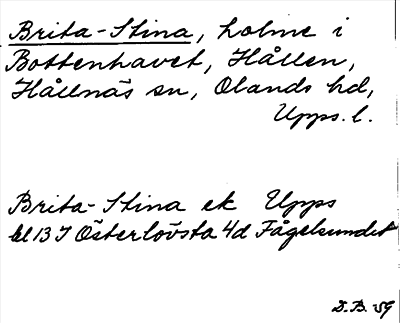 Brita-Stina, holme i
Bottenhavet, Hållen,
Hållnäs sn, Olands hd,
Upps. l.
Brita-Stina ek Upps
bl 13 I Österlövsta 4d Fågelsundet
D.B. 59